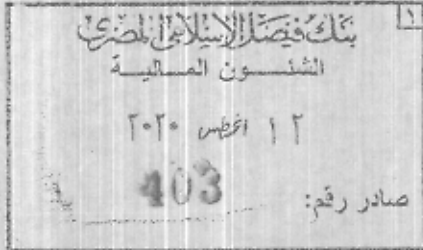 ١
بنك فيصل الإسلامي المصري
الشئون المالية
١٢ اغسطس ٢٠٢٠
صادر رقم: 403